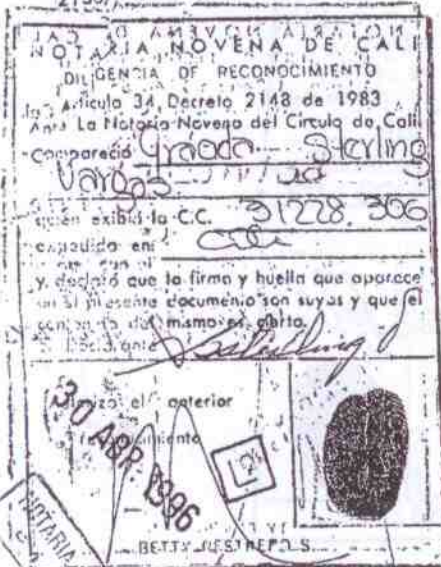 NOTARIA NOVENA DE CALI
DILIGENCIA DE RECONOCIMIENTO
Articulo 34, Decreto 2148 de 1983
Ante La Notaria Novena del Circulo de Cali
compareció Sterling
Vargas
quien exibió la C.C. 31228.306
expedida en Cali
y declaró que la firma y huella que aparece
en el presente documento son suyas y que el
contenido del mismo es cierto.
El Declarante
el anterior
30 ABR. 1996
NOTARIA
BETTY RESTREPO S.